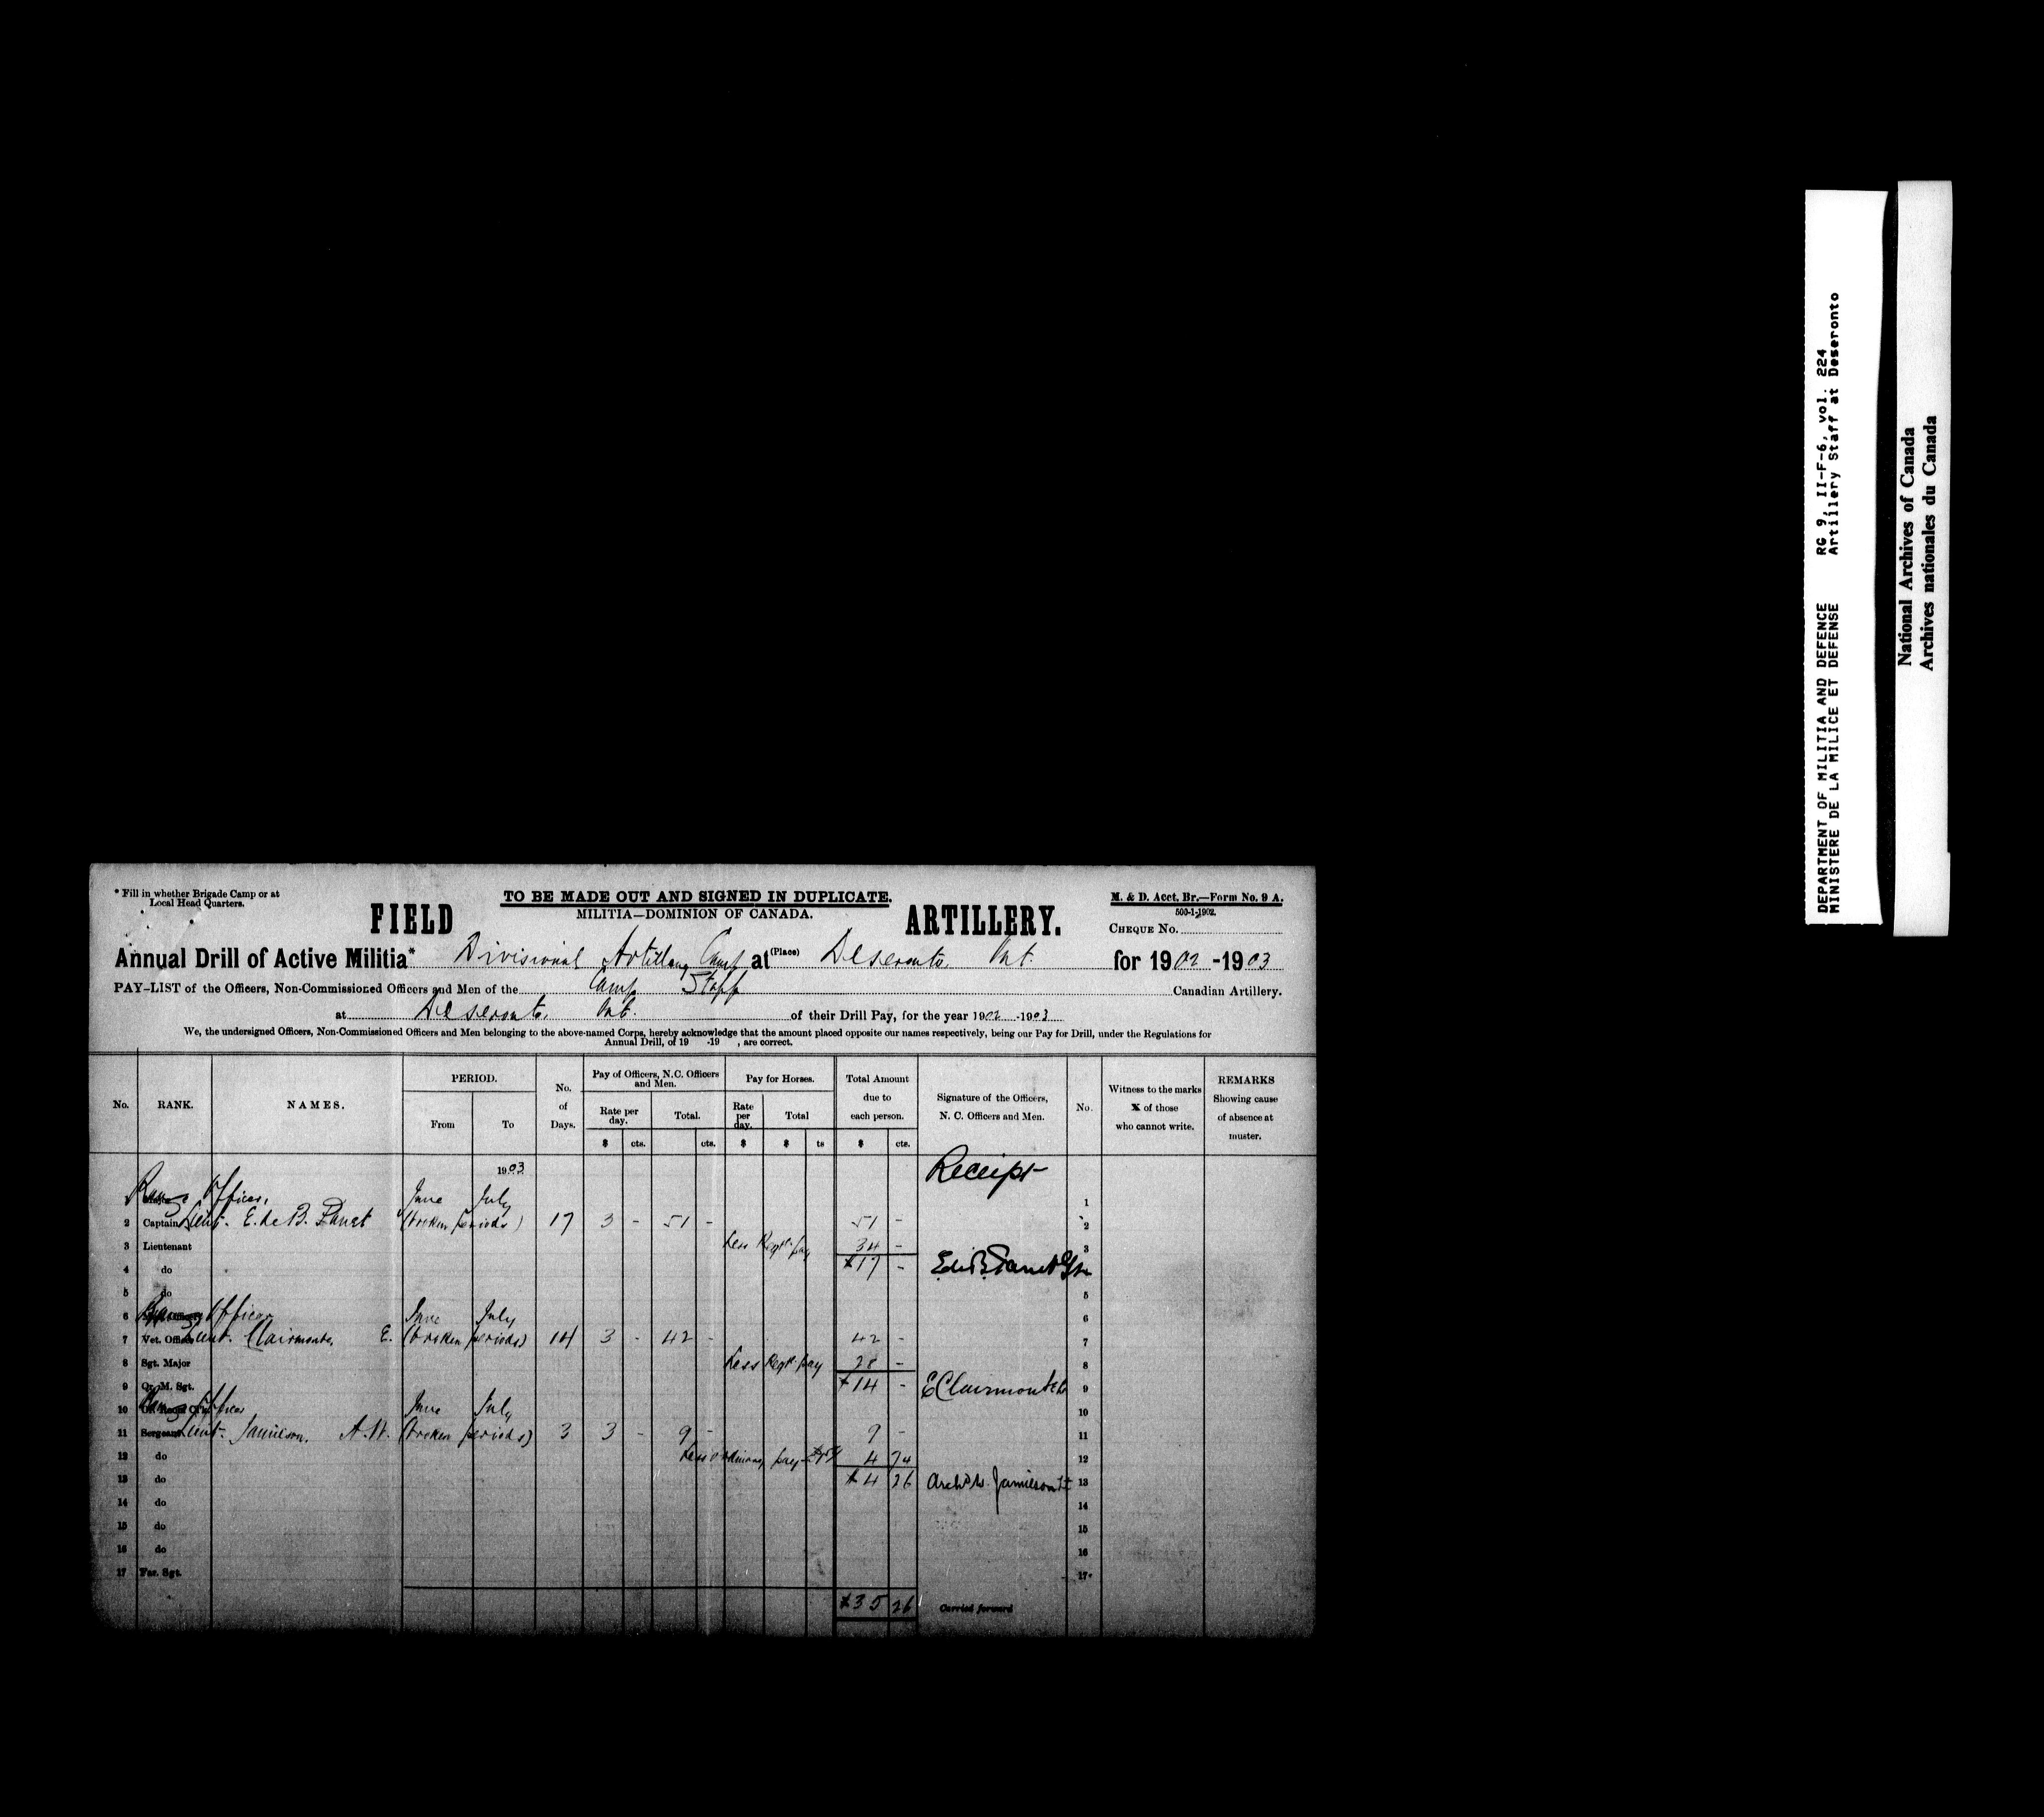 * Fill in whether Brigade Camp or at
Local Head Quarters.
TO BE MADE OUT AND SIGNED IN DUPLICATE.
MILITIA—DOMINION OF CANADA.
FIELD ARTILLERY.
M. & D. Acct. Br.—Form No. 9 A.
500-1-1902.
CHEQUE No.
Annual Drill of Active Militia* Divisional Artillery Camp at (Place) Deseronto Ont. for 1902-1903
PAY-LIST of the Officers, Non-Commissioned Officers and Men of the Camp Staff Canadian Artillery.
at Deseronto Ont. of their Drill Pay, for the year 1902-1903
We, the undersigned Officers, Non-Commissioned Officers and Men belonging to the above-named Corps, hereby acknowledge that the amount placed opposite our names respectively, being our Pay for Drill, under the Regulations for
Annual Drill, of 19 -19 , are correct.
No. RANK. NAMES. PERIOD. From To No. of Days. Pay of Officers, N.C. Officers and Men. Rate per day. $ cts. Total. cts. Pay for Horses. Rate per day. $ Total $ ts Total Amount due to each person. $ cts. Signature of the Officers, N. C. Officers and Men. No. Witness to the marks X of those who cannot write. REMARKS Showing cause of absence at muster.
1903 Receipt
Range Officer, June July 1
2 Captain Lieut. E. de B. Panet (broken periods) 17 3 - 51 - 51 - 2
3 Lieutenant Less Regtl. pay 34 - 3
4 do $17 - E de B Panet
5 do 5
6 Range Officer June July 6
7 Vet. Officer Lieut. Clairmonte, E. (broken periods) 14 3 - 42 - 42 - 7
8 Sgt. Major Less Regtl. pay 28 - 8
9 Qr. M. Sgt. $14 - E Clairmonte Lt 9
10 Range Officer June July 10
11 Sergeant Lieut. Jamieson, A.W. (broken periods) 3 3 - 9 - 9 - 11
12 do Less ordinary pay 4 74 12
13 do $4 26 Arch W. Jamieson Lt 13
14 do 14
15 do 15
16 do 16
17 Far. Sgt. 17
$35 26 Carried forward
DEPARTMENT OF MILITIA AND DEFENCE RG 9, II-F-6, vol. 224
MINISTERE DE LA MILICE ET DEFENSE Artillery Staff at Deseronto
National Archives of Canada
Archives nationales du Canada